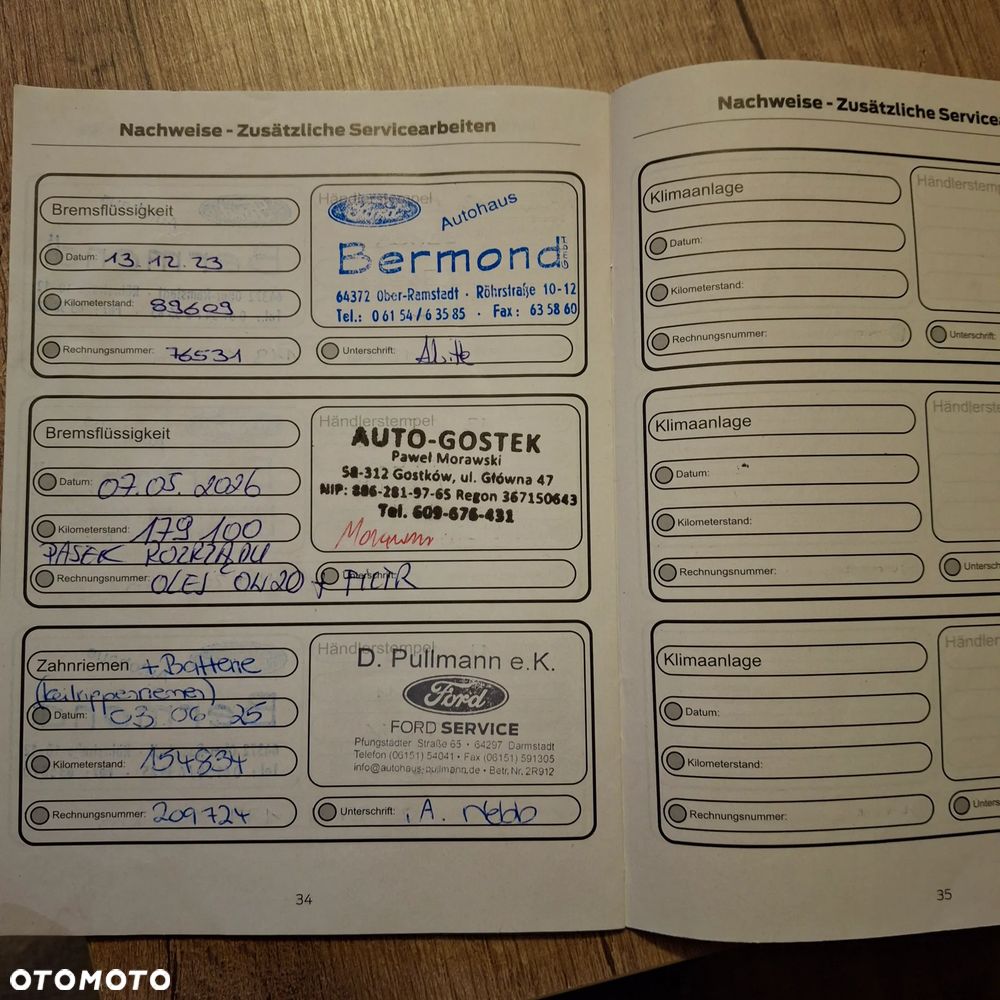 Nachweise - Zusätzliche Servicearbeiten
Bremsflüssigkeit
Datum: 13.12.23
Kilometerstand: 89609
Rechnungsnummer: 76531
Händlerstempel
Ford
Autohaus
Bermond
64372 Ober-Ramstadt · Röhrstraße 10-12
Tel.: 0 61 54 / 6 35 85 · Fax: 63 58 60
Unterschrift:
Bremsflüssigkeit
Datum: 07.05.2026
Kilometerstand: 179100
PASEK ROZRZĄDU
Rechnungsnummer: OLEJ 0W20 + FILTR
Händlerstempel
AUTO-GOSTEK
Paweł Morawski
58-312 Gostków, ul. Główna 47
NIP: 886-281-97-65 Regon 367150643
Tel. 609-676-431
Unterschrift:
Zahnriemen + Batterie
(Keilrippenriemen)
Datum: 03 06 25
Kilometerstand: 154834
Rechnungsnummer: 209724
Händlerstempel
D. Pullmann e.K.
Ford
FORD SERVICE
Pfungstädter Straße 65 · 64297 Darmstadt
Telefon (06151) 54041 · Fax (06151) 591305
info@autohaus-pullmann.de · Betr. Nr. 2R912
Unterschrift: i.A.
34
Nachweise - Zusätzliche Service
Klimaanlage
Datum:
Kilometerstand:
Rechnungsnummer:
Händlerstem
Unterschrift:
Klimaanlage
Datum:
Kilometerstand:
Rechnungsnummer:
Händlerste
Untersch
Klimaanlage
Datum:
Kilometerstand:
Rechnungsnummer:
Händler
Unters
35
OTOMOTO